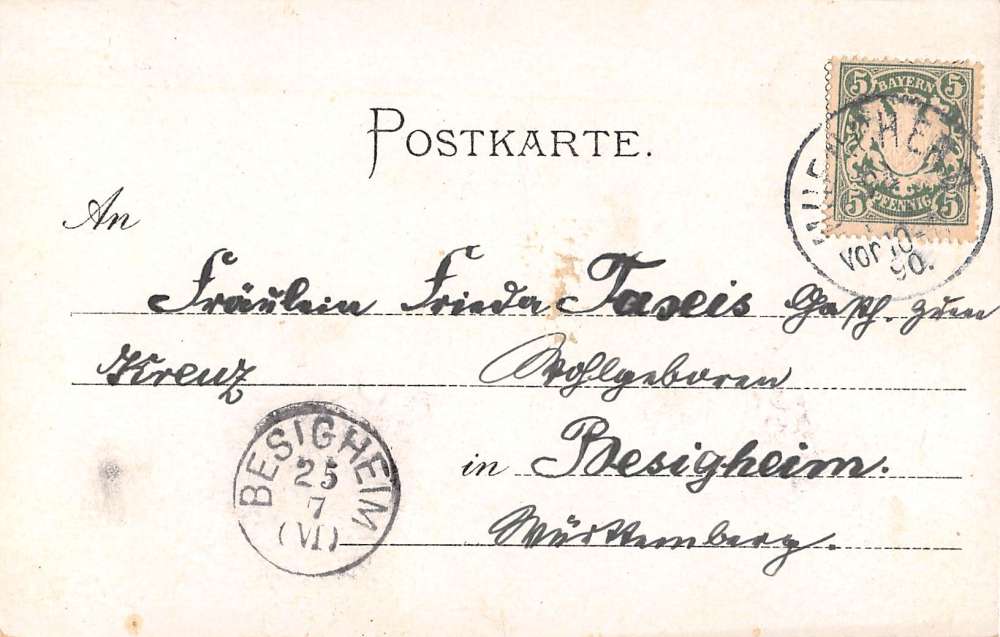 BAYERN
5 5
5 PFENNIG 5
MUENCHEN
Vor 10-
90.
POSTKARTE.
An
Fräulein Frieda Taxeis Gasth. zum
Kreuz Wohlgeboren
in Besigheim.
Württemberg.
BESIGHEIM
25
7
(VI)